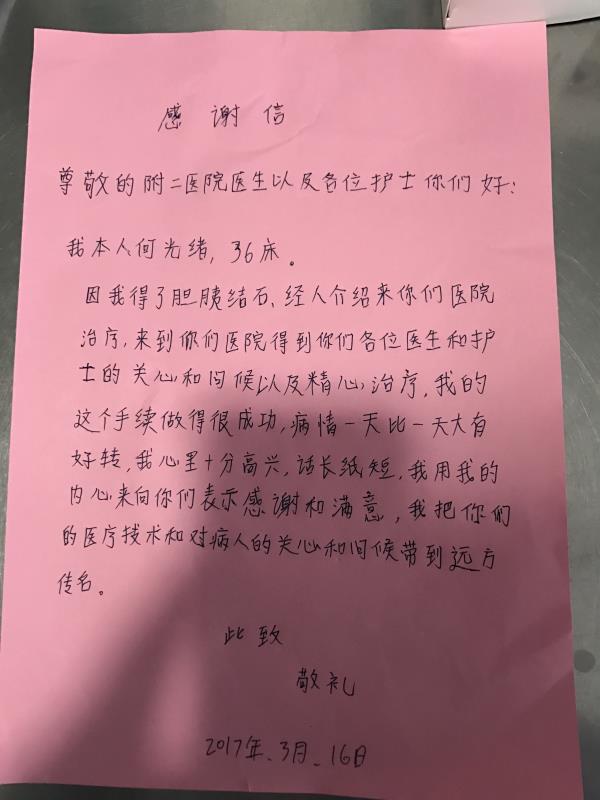 感谢信
尊敬的附二医院医生以及各位护士你们好:
我本人何光绪,36床。
因我得了胆胰结石、经人介绍来你们医院
治疗,来到你们医院得到你们各位医生和护
士的关心和问候以及精心治疗,我的
这个手续做得很成功,病情一天比一天大有
好转,我心里十分高兴,话长纸短,我用我的
内心来向你们表示感谢和满意,我把你们
的医疗技术和对病人的关心和问候带到远方
传名。
此致
敬礼
2017年、3月、16日